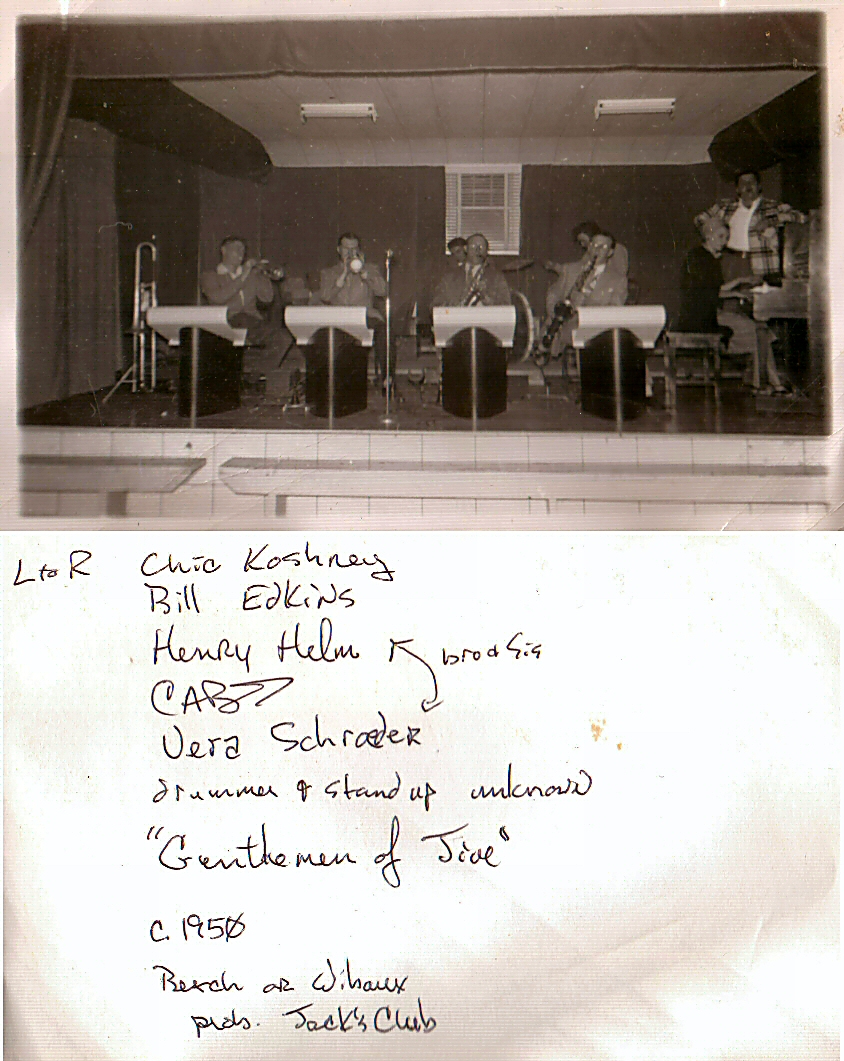 L to R Chic Koshney
Bill Edkins
Henry Helm bro & sis
CAB
Vera Schroeder
drummer & stand up unknown
"Gentlemen of Jive"
c. 1950
Beach or Wibaux
prob. Jack's Club